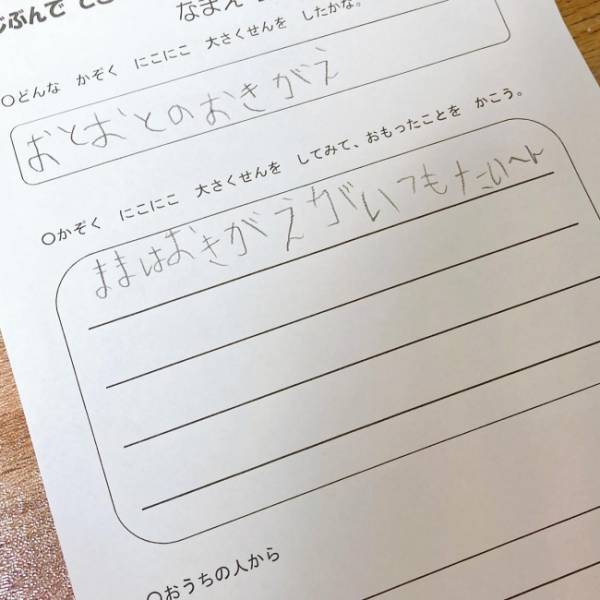 じぶんで
なまえ
○どんな かぞく にこにこ 大さくせんを したかな。
おとおとのおきがえ
○かぞく にこにこ 大さくせんを してみて、おもったことを かこう。
ままはおきがえがいつもたいへん
○おうちの人から